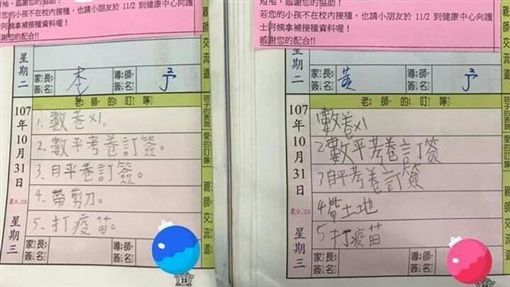 短袖，感謝您的協助！
若您的小孩不在校內接種，也請小朋友於 11/2 到健康中心向護
士阿姨拿補接種資料喔！
感謝您的配合!!
星期二
家長簽名： 李
導師簽名： 予
老師的叮嚀
親師交流道
107年10月31日
農9.23
星期三
1. 數卷x1。
2. 數平考卷訂簽。
3. 自平卷訂簽。
4. 帶剪刀。
5. 打疫苗。
家長簽名：
導師簽名：
親師交流道
短袖，感謝您的協助！
若您的小孩不在校內接種，也請小朋友於 11/2 到健康中心向護
士阿姨拿補接種資料喔！
感謝您的配合!!
星期二
家長簽名： 黃
導師簽名： 予
老師的叮嚀
親師交流道
107年10月31日
農9.23
星期三
數卷x1
2數平考卷訂簽
3自平考卷訂簽
4帶土地
5打疫苗
家長簽名：
導師簽名：
親師交流道